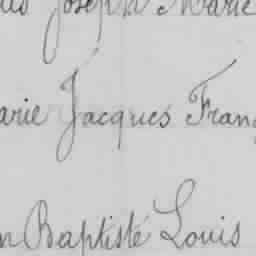 Joseph Marie
arie Jacques Fran
n Baptiste Louis